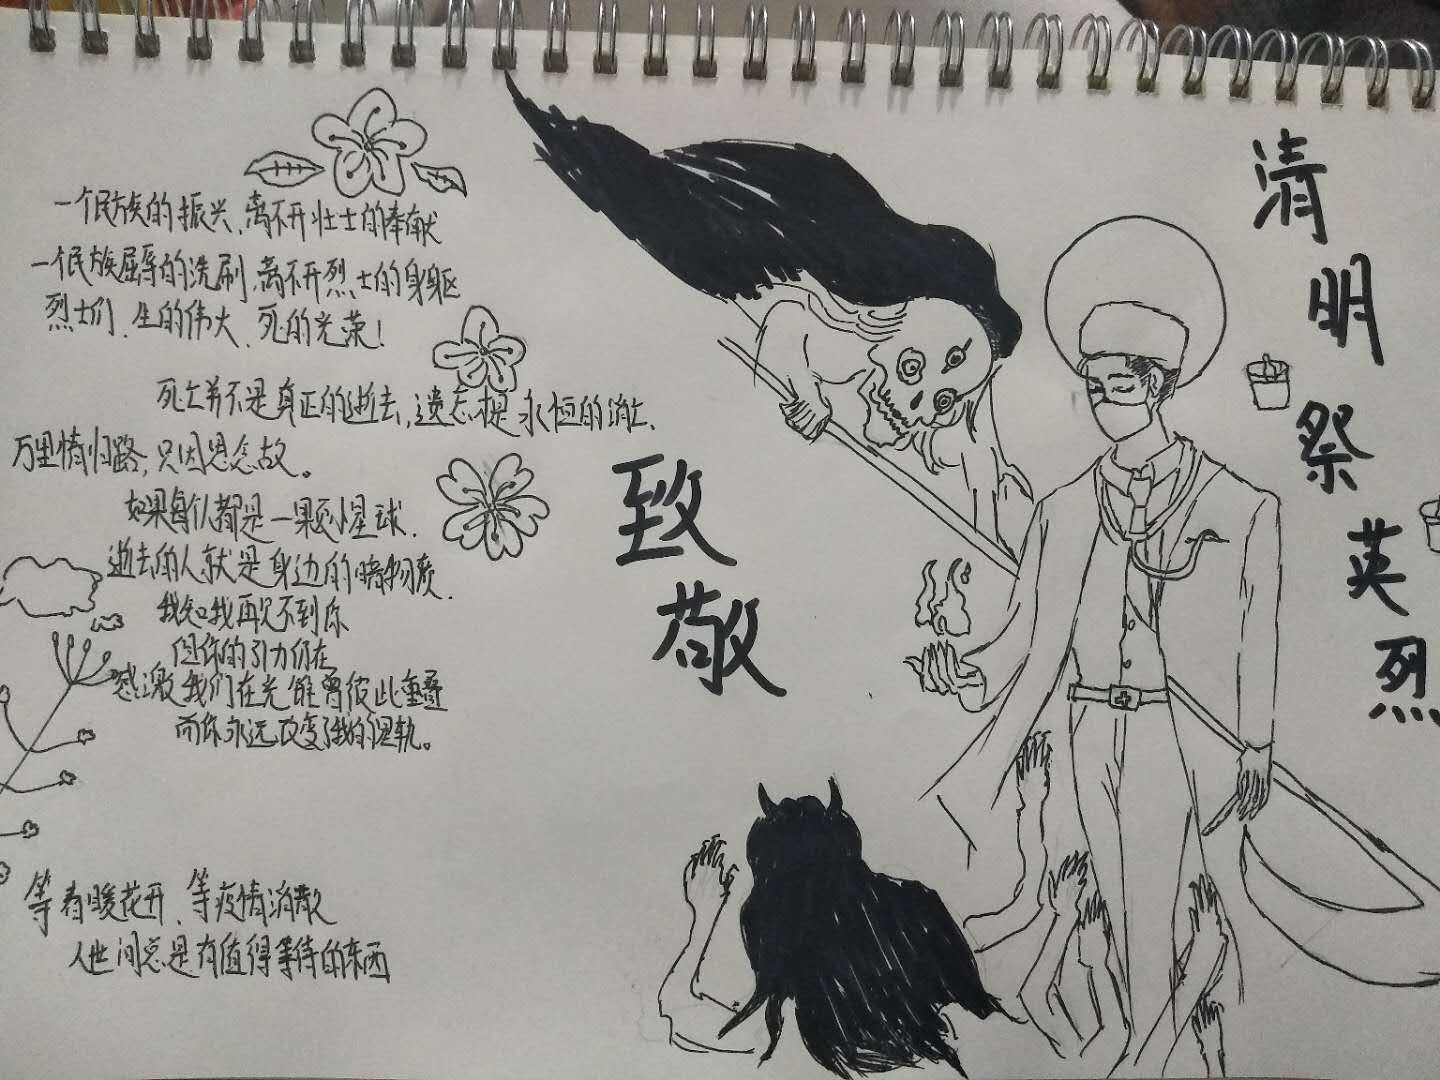 清明祭英烈
致敬
一个民族的振兴、离不开壮士的奉献
一个民族屈辱的洗刷,离不开烈士的身躯
烈士们、生的伟大、死的光荣!
死亡并不是真正的逝去,遗忘才是永恒的消亡.
万里情归路,只因思念故。
如果每个人都是一颗小星球.
逝去的人就是身边的暗物质.
我知我再见不到你
但你的引力仍在
感激我们在光锥曾彼此重叠
而你永远改变了我的星轨。
等春暖花开、等疫情消散
人世间总是有值得等待的东西